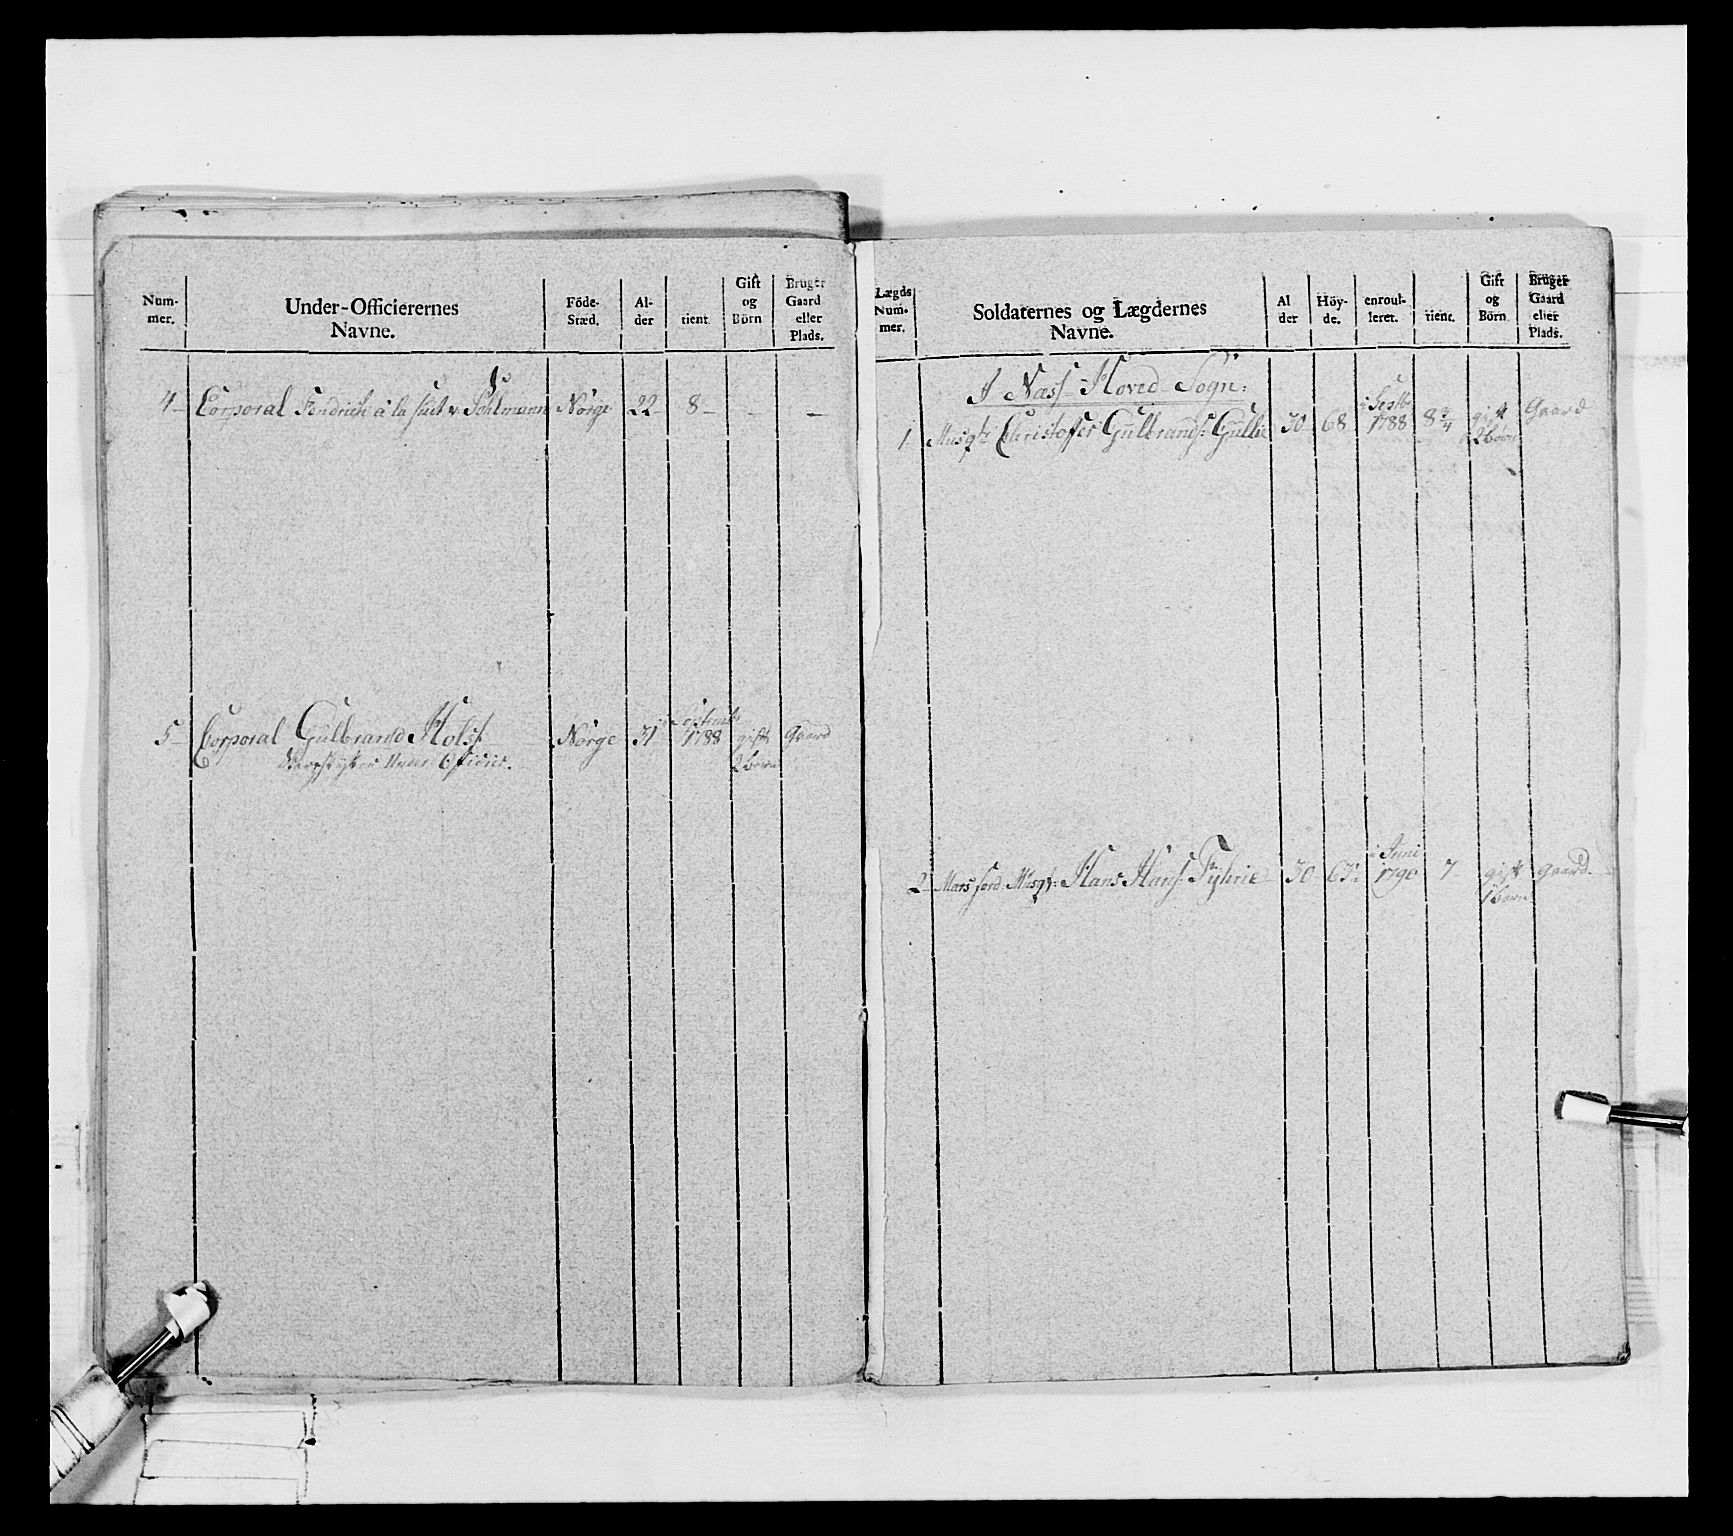 Num-
mer.
Under-Officierernes
Navne.
Föde-
Stæd.
Al-
der
tient.
Gift
og
Börn
Bruger
Gaard
eller
Plads.
4 – Corporal Fendrich à la suit v: Pohlmann Norge 22 – 8 – – –
5 – Corporal Gulbrand Holst Norge 31 Septembr
1788 gift Gaard
Under Officier. 2 børn
Lægds
Num-
mer.
Soldaternes og Lægdernes
Navne.
Al
der
Höy-
de.
enroul-
leret.
tient.
Gift
og
Börn
Bruger
Gaard
eller
Plads.
I Næss Hoved Sogn:
1 Musqt: Christoffer Gulbrands: Gullie 30 68 i Septbr
1788 8 3/4 gift Gaard
2 børn
2 – Mars ferd. Musqt: Hans Hans: Tyhrie 30 67½ i Juni
1790 7 – gift Gaard.
1 barn